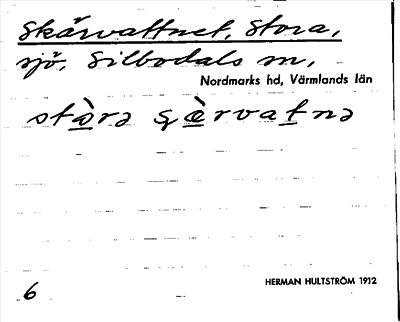 Skärvattnet, Stora,
sjö, Silbodals sn,
Nordmarks hd, Värmlands län
stὰ̱rə
6
HERMAN HULTSTRÖM 1912